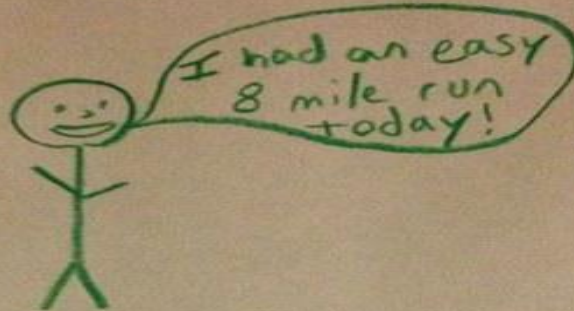 I had an easy
8 mile run
today!